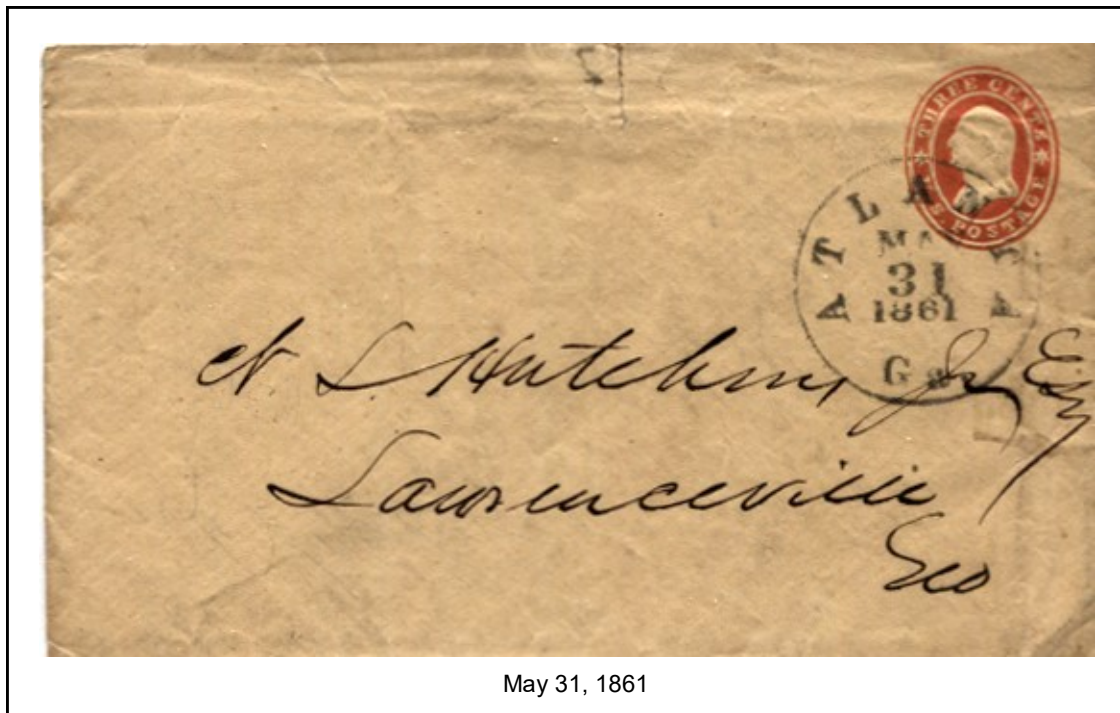 THREE CENTS
U.S. POSTAGE
ATLANTA
MAY
31
1861
Ga
N. L. Hutchins Jr Esq
Lawrenceville
Geo
May 31, 1861